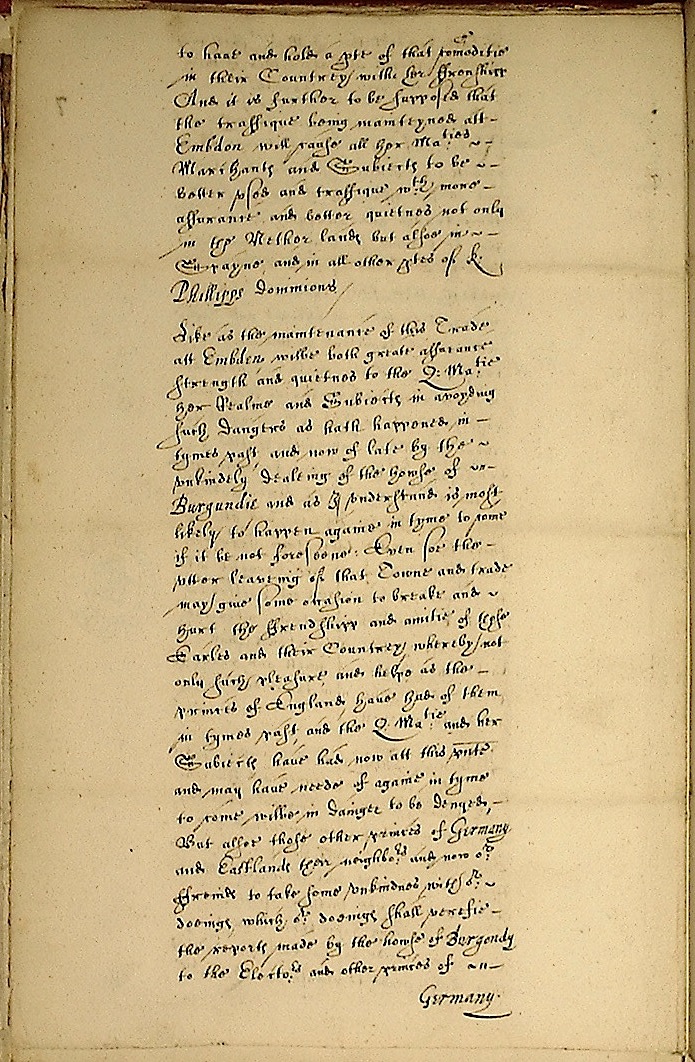 to haue and hold a pte of that comoditie
in their Countrey wth her ffrendshipp
And it is further to be supposed that
the traffique being mainteyned att
Embden will cause all her Ma:ties
Marchants and Subiects to be
better vsed and traffique wth more
assurance and better quietnes not only
in the Nether lands but alsoe in
Spayne and in all other ptes of K:
Phillipps dominions
Like as the maintenance of this Trade
att Embden wilbe both greate assurance
strength and quietnes to the Q: Ma:tie
her Realme and Subiects in avoyding
such dangers as hath happened in
tymes past and now of late by the
vnkindely dealing of the howse of
Burgundie and as I vnderstand is most
likely to happen againe in tyme to come
if it be not foreseene: Even soe the
vtter leaveing of that Towne and trade
may give some occasion to breake and
hurt the ffrendshipp and amitie of these
Earles and their Countrey whereby not
only such pleasure and helpe as the
princes of England have had of them
in tymes past and the Q Ma:tie and her
Subiects have had now att this pnte
and may have neede of againe in tyme
to come wilbe in daunger to be denyed,
But alsoe those other princes of Germany
and Eastlands their neighbors and now or
ffreinds to take some vnkindnes with or
doeings which or doeings shall verefie
the reports made by the howse of Burgondy
to the Elector:s and other princes of
Germany